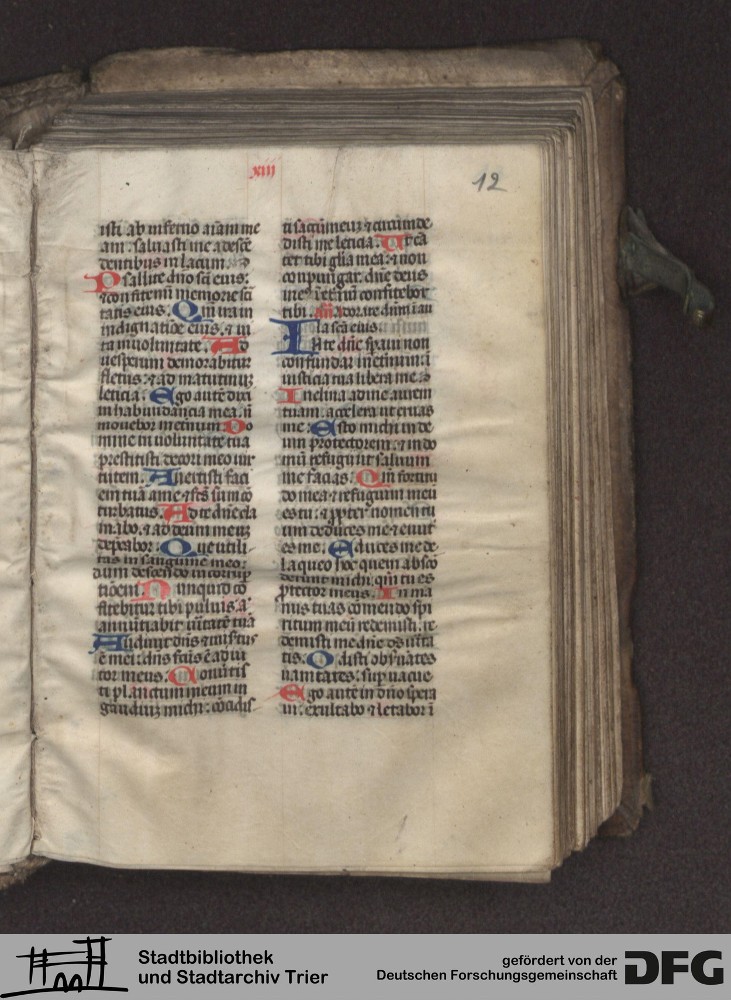 xiii
12
isti ab inferno aīam me
am: saluasti me a descē
dentibus in lacum.
Psallite dno sc̄i eius:
⁊ confitemī memorie sc̄i
tatis eius. Qm̄ ira in
indignatiōe eius. ⁊ ui
ta in uoluntate. Ad
uesperum demorabitur
fletus: ⁊ ad matutinuꝫ
leticia. Ego autē dixi
in habundancia mea: nō
mouebor in etnum. Do
mine in uoluntate tua
prestitisti decori meo uir
tutem. Auertisti faci
em tuā a me ⁊ fc̄s sum cō
turbatus. Ad te dne cla
mabo. ⁊ ad deum meuꝫ
dep̄cabor. Que utili
tas in sanguine meo:
dum descendo in corrup
tiōem. Nunquid cō
fitebitur tibi puluis. a
annūtiabit uītatē tuā
Audiuit dn̄s ⁊ misertus
ē mei: dns fc̄us ē adiu
tor meus. Conūtis
ti planctum meum in
gaudiuꝫ michi: cōcidis
ti saccū meuꝫ ⁊ circūde
disti me leticia. Ut cā
tet tibi glīa mea: ⁊ non
conpungar. dn̄e deus
meus ī etnū confitebor
tibi. añ adorate dn̄m ī au
la scā eius.
In te dn̄e spaui non
confundar in etnum: ī
iusticia tua libera me.
Inclina ad me aurem
tuam: accelera ut eruas
me. Esto michi in de
um protectorem: ⁊ in do
mū refugii ut saluum
me facias. Qm̄ fortitu
do mea ⁊ refugium meū
es tu: ⁊ ꝓpter nomen tu
um deduces me ⁊ enut
es me. Educes me de
laqueo hoc quem absco
derunt michi: qm̄ tu es
ꝓtector meus. In ma
nus tuas cōmendo spi
ritum meū redemisti: re
demisti me dn̄e ds uīta
tis. Odisti obſuātes
uanitates: supuacue
Ego autē in dn̄o spera
ui: exultabo ⁊ letabor ī
Stadtbibliothek
und Stadtarchiv Trier
gefördert von der
Deutschen Forschungsgemeinschaft
DFG